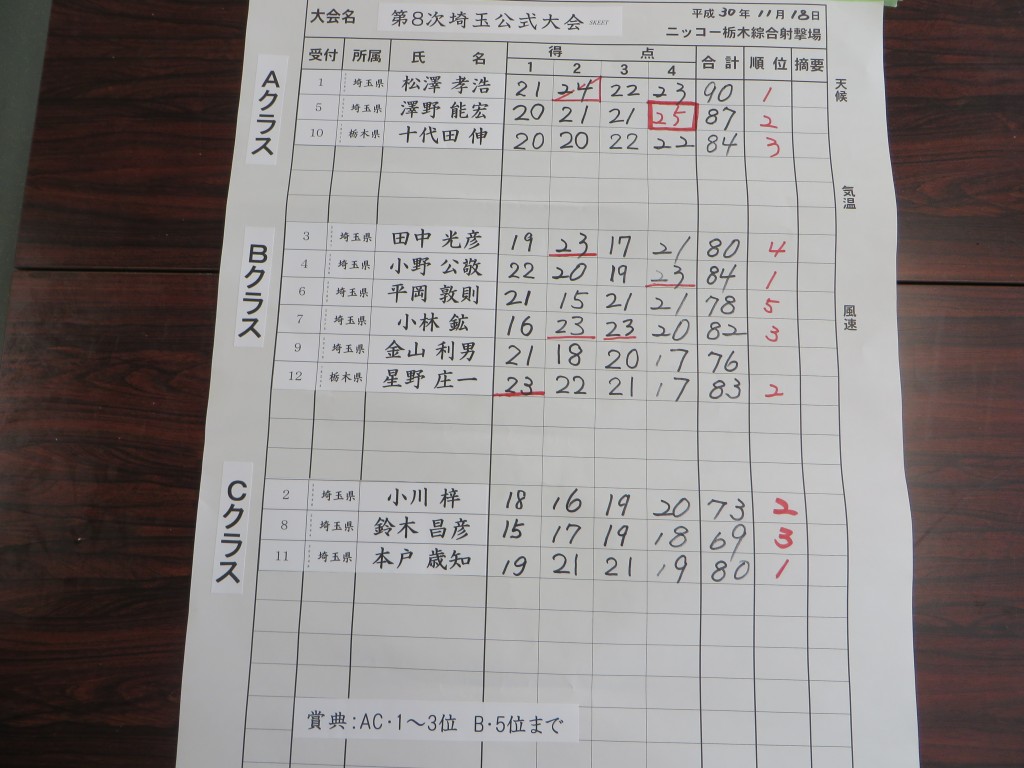 大会名 第8次埼玉公式大会 SKEET 平成30年11月18日
ニッコー栃木綜合射撃場
受付 所属 氏名 得点 合計 順位 摘要
1 2 3 4
Aクラス
1 埼玉県 松澤 孝浩 21 24 22 23 90 1
5 埼玉県 澤野 能宏 20 21 21 25 87 2
10 栃木県 十代田 伸 20 20 22 22 84 3
Bクラス
3 埼玉県 田中 光彦 19 23 17 21 80 4
4 埼玉県 小野 公敬 22 20 19 23 84 1
6 埼玉県 平岡 敦則 21 15 21 21 78 5
7 埼玉県 小林 鉱 16 23 23 20 82 3
9 埼玉県 金山 利男 21 18 20 17 76
12 栃木県 星野 庄一 23 22 21 17 83 2
Cクラス
2 埼玉県 小川 梓 18 16 19 20 73 2
8 埼玉県 鈴木 昌彦 15 17 19 18 69 3
11 埼玉県 本戸 歳知 19 21 21 19 80 1
賞典:AC・1〜3位 B・5位まで
天候
気温
風速